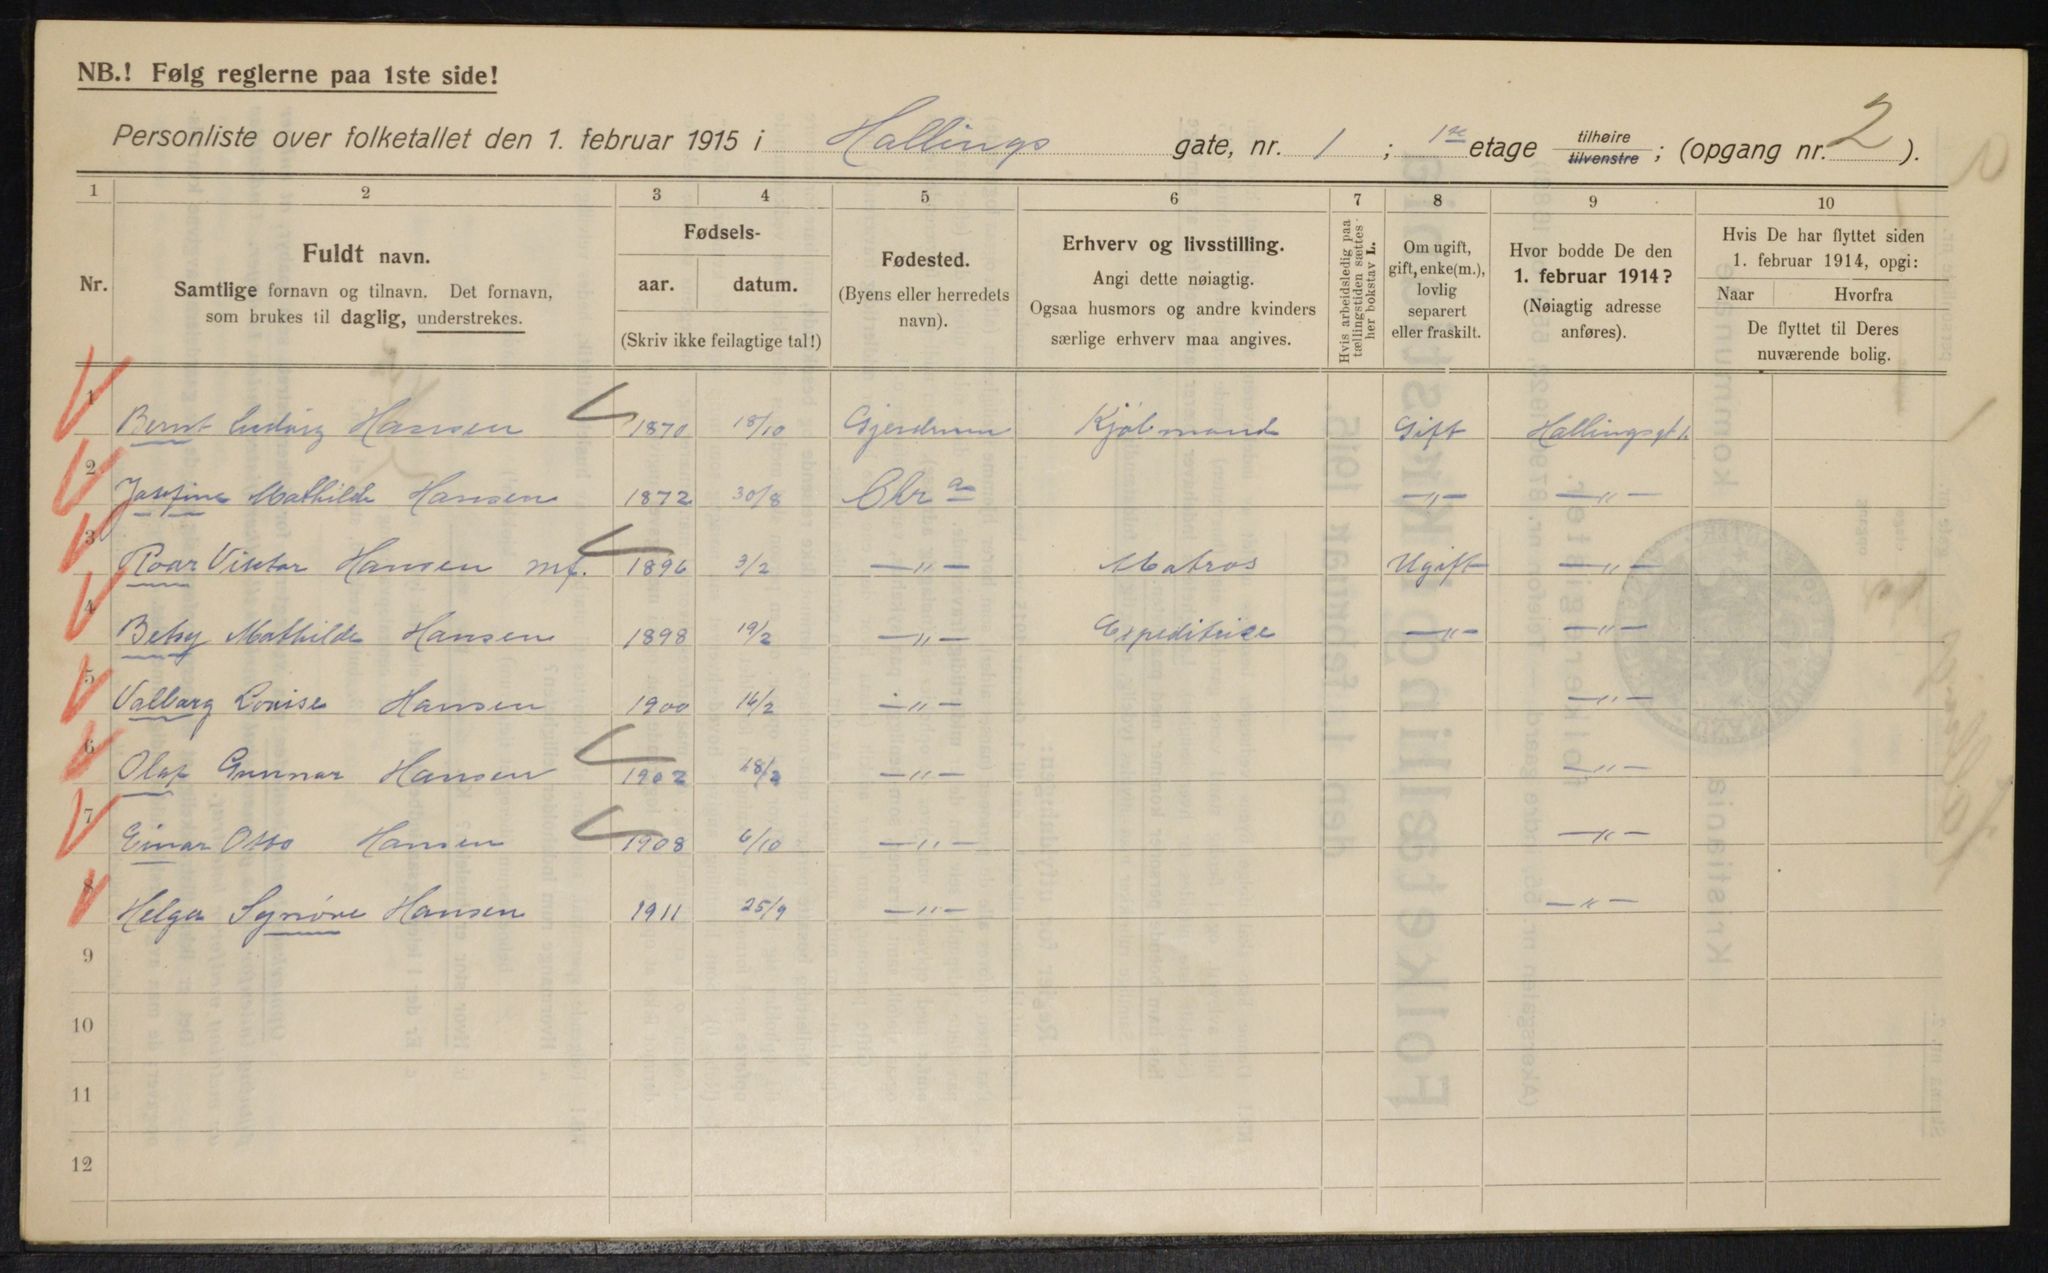 NB.! Følg reglerne paa 1ste side!
Personliste over folketallet den 1. februar 1915 i Hallings gate, nr. 1 ; 1ste etage tilhøire tilvenstre ; (opgang nr. 2 ).
1 2 3 4 5 6 7 8 9 10
Nr.
Fuldt navn.
Samtlige fornavn og tilnavn. Det fornavn,
som brukes til daglig, understrekes.
Fødsels-
aar. datum.
(Skriv ikke feilagtige tal!)
Fødested.
(Byens eller herredets
navn).
Erhverv og livsstilling.
Angi dette nøiagtig.
Ogsaa husmors og andre kvinders
særlige erhverv maa angives.
Hvis arbeidsledig paa
tællingstiden sættes
her bokstav L.
Om ugift,
gift, enke(m.),
lovlig
separert
eller fraskilt.
Hvor bodde De den
1. februar 1914?
(Nøiagtig adresse
anføres).
Hvis De har flyttet siden
1. februar 1914, opgi:
Naar Hvorfra
De flyttet til Deres
nuværende bolig.
1 Bernt Ludvig Hansen 1870 18/10 Gjerdrum Kjøbmand Gift Hallingsgt 1.
2 Josefine Mathilde Hansen 1872 30/8 Chra —"— —"—
3 Roar Viktor Hansen mf. 1896 3/2 —"— Matros Ugift —"—
4 Betsy Mathilde Hansen 1898 19/2 —"— Expeditrice —"— —"—
5 Valborg Louise Hansen 1900 16/2 —"— —"—
6 Olaf Gunnar Hansen 1902 18/2 —"— —"—
7 Einar Otto Hansen 1908 6/10 —"— —"—
8 Helga Synnøve Hansen 1911 25/9 —"— —"—
9
10
11
12